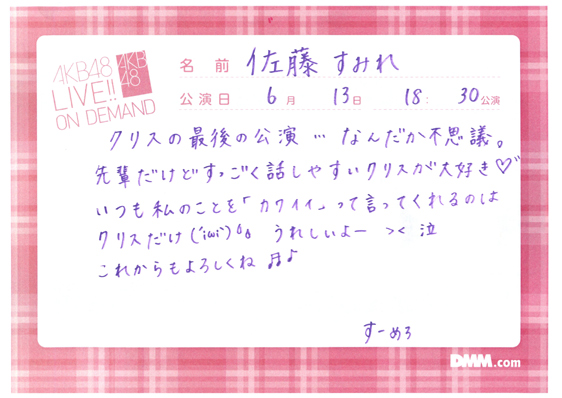 AKB48
LIVE!!
ON DEMAND
AKB
48
名前 佐藤 すみれ
公演日 6月 13日 18:30公演
クリスの最後の公演…なんだか不思議。
先輩だけどすっごく話しやすいクリスが大好き♡
いつも私のことを「カワイイ」って言ってくれるのは
クリスだけ(´;ω;`) うれしいよー ><泣
これからもよろしくね♬♪
すーめろ
DMM.com